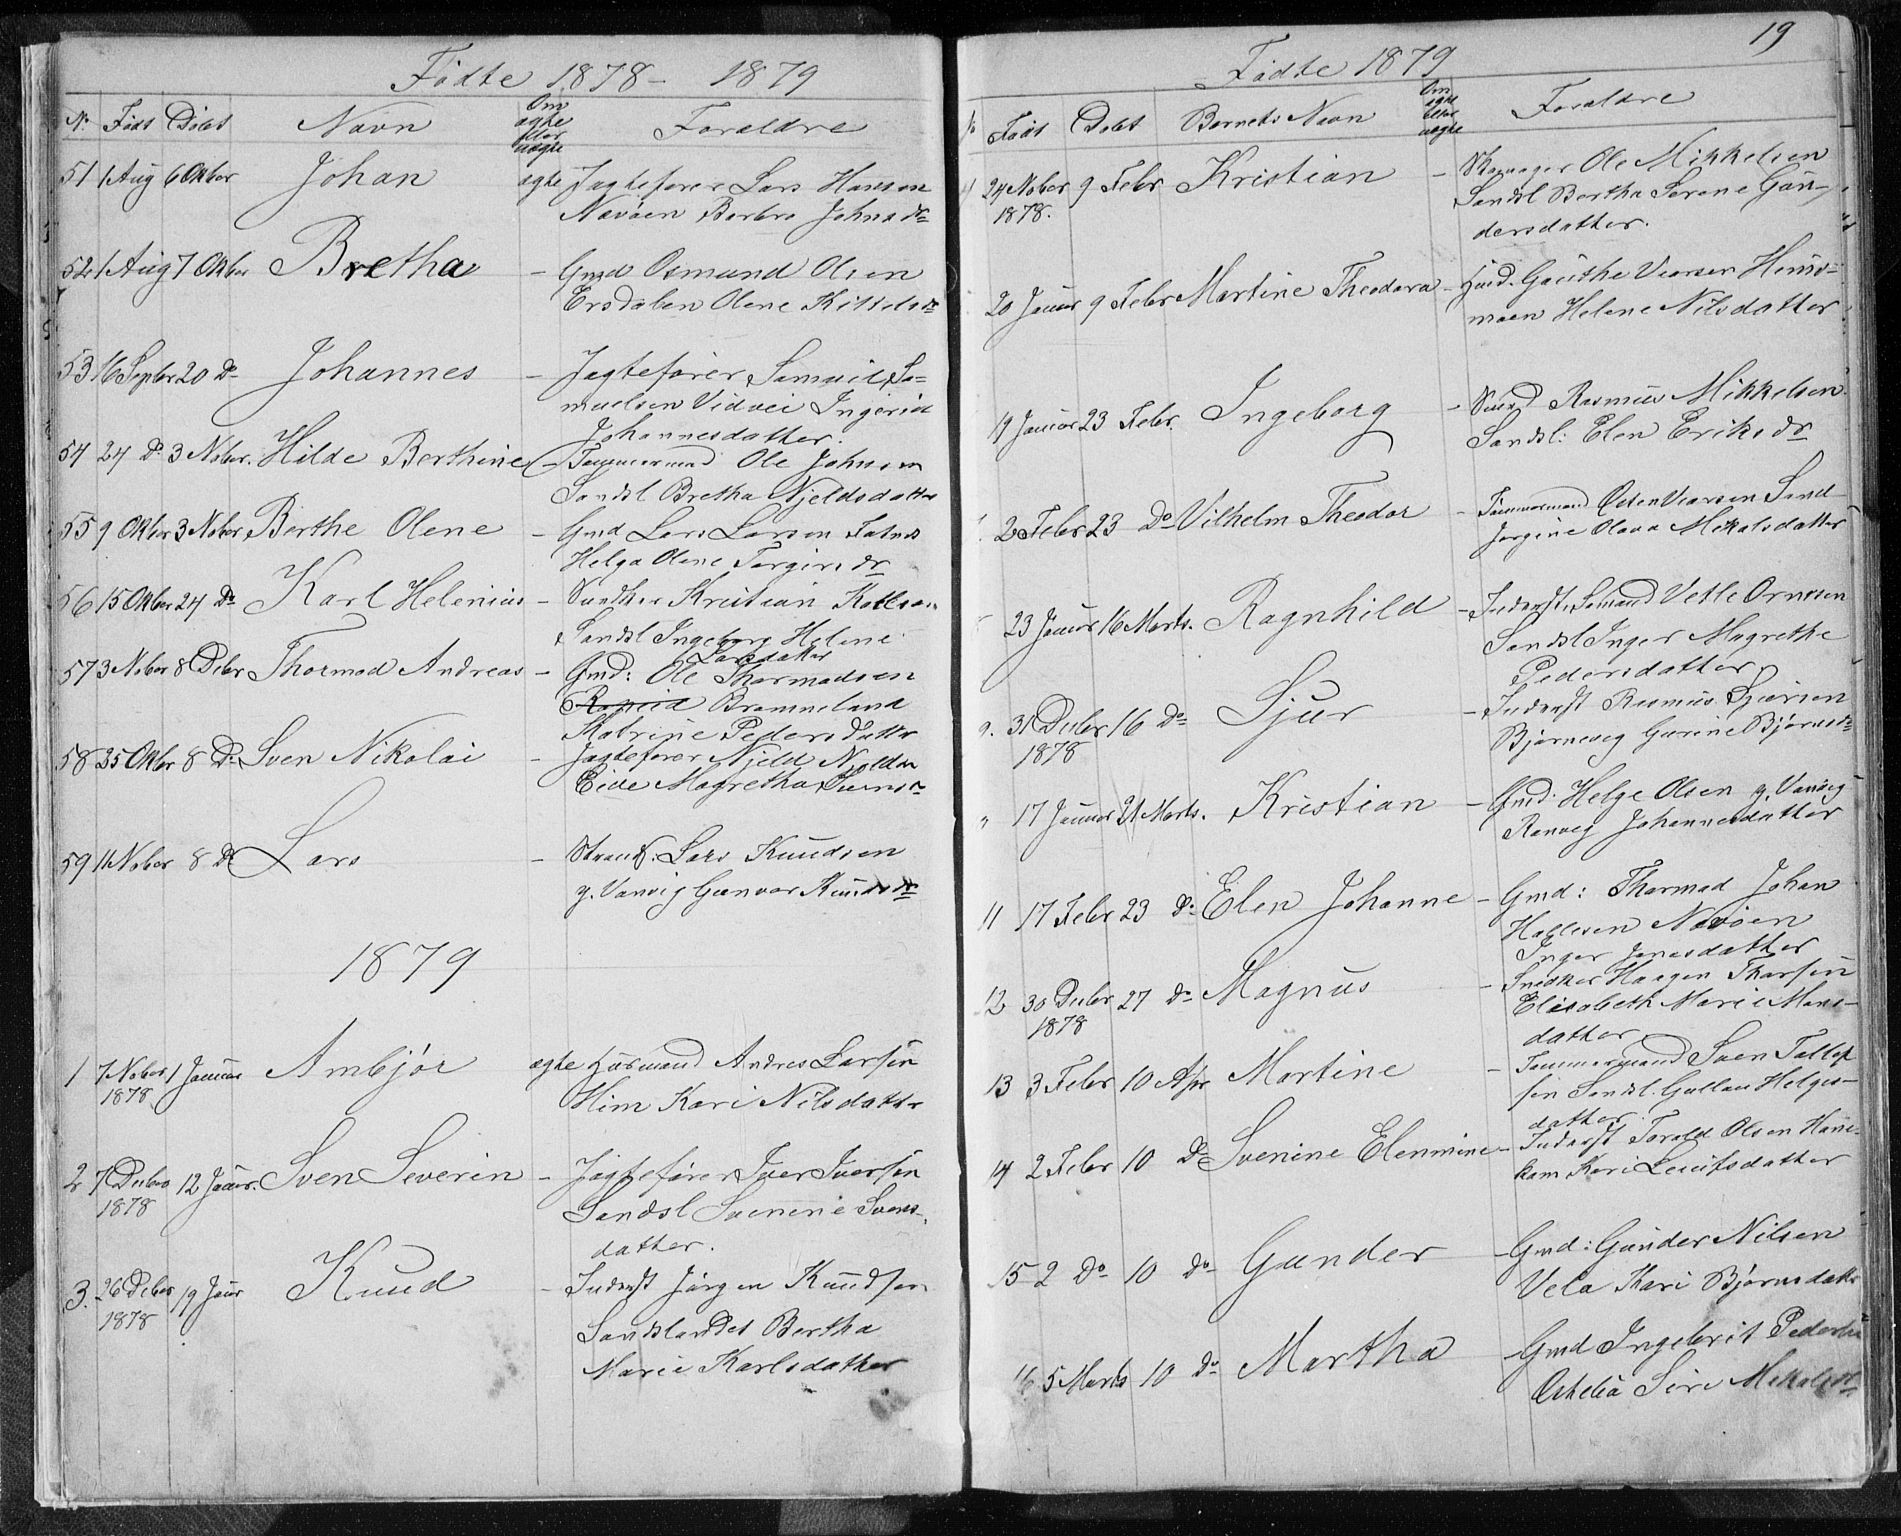 Fødte 1878 - 1879
No Født Døbt Navn Om ægte eller uægte Forældre
51 1 Aug 6 Oktbr Johan ægte Jagtefører Lars Hansen
Nævøen Barbro Johnsdr
52 1 Aug 7 Oktbr Bretha - Gmd Osmund Olsen
Ersdalen Olene Kittelsdr
53 16 Septbr 20 Do Johannes - Jagtefører Samuel Sa=
muelsen Vidvei Ingerid
Johannesdatter.
54 24 Do 3 Nobr. Hilde Berthine - Tømmermand Ole Johnsen
Sandsl Bretha Njeldsdatter
55 9 Oktbr 3 Nobr Berthe Olene - Gmd Lars Larsen Fatnes
Helga Olene Torgirsdr
56 15 Oktbr 24 Do Karl Helenius - Kristian
Sandsl Ingeborg Helene
Larsdatter
57 3 Nobr 8 Debr Thormod Andreas - Gmd: Ole Thormodsen
Brommeland
Katrine Pedersdatter
58 25 Oktbr 8 Do Sven Nikolai - Jagtefører Njeld Njeldsen
Eide Magretha Svensdr
59 11 Nobr 8 Do Lars - Strands: Lars Knudsen
g. Vanvig Gunvor Knudsdr
1879
1 7 Nobr 1 Januar Ambjør ægte Husmand Andres Larsen
1878 Him Kari Nilsdatter
2 7 Debr 12 Januar. Sven Severin - Jagtefører Iver Iversen
1878 Sandsl Svenine Svens-
datter.
3. 26 Debr 19 Januar Knud - Inderst Jørgen Knudsen
1878 Sandslandet Bertha
Marie Karlsdatter
19
Fødte 1879
No Født Døbt Barnets Navn Om ægte eller uægte Forældre
24 Nobr 9 Febr Kristian - Ole Mikkelsen
1878. Sandsl Bertha Serene Gun-
dersdatter.
20 Januar 9 Febr Martine Theodora - Hmd. Gauthe Viersen Hims=
moen Helene Nilsdatter
19 Januar 23 Febr. Ingeborg - Rasmus Mikkelsen
Sandsl: Elen Eriksdr
2 Febr 23 Do Vilhelm Theodor - Tømmermand Osten Sand
Jorgine Olava Mikalsdatter
23 Januar 16 Marts. Ragnhild - Inderst, Sømand Vetle Ornesen
Sandsl Inger Magrethe
Pedersdatter
9. 31 Debr 16 Do Sjur - Inderst Rasmus Sjursen
1878 Bjørneveg Gurine Bjørnsdr
" 17 Januar 21 Marts. Kristian - Gmd: Helge Olsen g. Vanvig
Ranveg Johannesdatter
11 17 Febr 23 Do Elen Johanne - Gmd: Thormod Johan
Hallesen Nævøen
Inger Jonesdatter
12 30 Debr 27 Do Magnus - Snedker Haagen Thorsen
1878 Elisabeth Marie Mons-
datter
13 3 Febr 10 Apr Martine - Tømmermand Sven Tollef
sen Sandsl. Gullau Helges-
datter.
14 2 Febr 10 Do Svenine Elenmine - Inderst Torald Olsen Hane-
kam Kari Leuifsdatter
15 2 Do 10 Do Gunder - Gmd: Gunder Nilsen
Vela Kari Bjørnsdatter
16 5 Marts 10 Do Martha - Gmd Ingebrit Pedersen
Siri